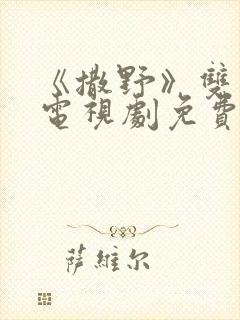 《撒野》雙
電視劇免費
萨維尔